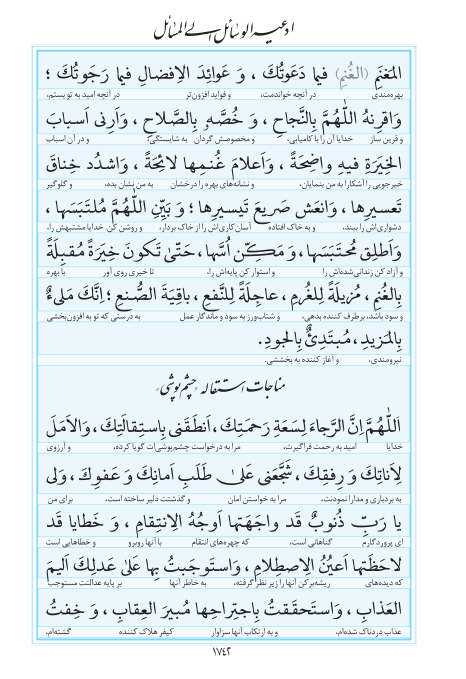 ادعیه الوسائل الی المسائل
المَغنَمِ (الغُنمِ) فیما دَعَوتُکَ ، وَ عَوائِدَ الاِفضالِ فیما رَجَوتُکَ ؛
بهره‌مندی در آنچه خواندمت، و فواید افزون‌تر در آنچه امید به تو بستم،
وَاقرِنهُ اللّٰهُمَّ بِالنَّجاحِ ، وَ خُصَّهُ بِالصَّلاحِ ، وَاَرِنی اَسبابَ
و قرین ساز خدایا آن را با کامیابی، و مخصوصش گردان به شایستگی، و در آن اسباب
الخِیَرَةِ فیهِ واضِحَةً ، وَاَعلامَ غُنمِها لائِحَةً ، وَاشدُد خِناقَ
خیرجویی را آشکارا به من بنمایان، و نشانه‌های بهره را درخشان به من نشان بده، و گلوگیر
تَعسیرِها ، وَانعَش صَریعَ تَیسیرِها ؛ وَ بَیِّنِ اللّٰهُمَّ مُلتَبَسَها ،
دشواری‌اش را ببند، و به خاک افتاده آسان‌کاری‌اش را از خاک بردار، و روشن کن خدایا مشتبهش را،
وَ اَطلِق مُحتَبَسَها ، وَ مَکِّن اُسَّها ، حَتّیٰ تَکونَ خِیَرَةً مُقبِلَةً
و آزاد کن زندانی‌شده‌اش را و استوار کن پایه‌اش را، تا خیری روی آور با بهره
بِالغُنمِ ، مُزیلَةً لِلغُرمِ ، عاجِلَةً لِلنَّفعِ ، باقِیَةَ الصُّنعِ ؛ اِنَّکَ مَلیءٌ
و سود باشد، برطرف کننده بدهی، و شتاب‌ورز به سود و ماندگار عمل به درستی که تو به افزون‌بخشی
بِالمَزیدِ ، مُبتَدِئٌ بِالجودِ.
نیرومندی، و آغاز کننده به بخششی.
مناجات استقاله «چشم‌پوشی»
اَللّٰهُمَّ اِنَّ الرَّجاءَ لِسَعَةِ رَحمَتِکَ ، اَنطَقَنی بِاستِقالَتِکَ ، وَالاَمَلَ
خدایا امید به رحمت فراگیرت، مرا به درخواست چشم‌پوشی‌ات گویا کرده، و آرزوی
لِاَناتِکَ وَ رِفقِکَ ، شَجَّعَنی عَلیٰ طَلَبِ اَمانِکَ وَ عَفوِکَ ، وَلی
به بردباری و مدارا نمودنت، مرا به خواستن امان و گذشتت دلیر ساخته است، برای من
یا رَبِّ ذُنوبٌ قَد واجَهَتها اَوجُهُ الاِنتِقامِ ، وَ خَطایا قَد
ای پروردگارم گناهانی است، که چهره‌های انتقام با آنها روبرو و خطاهایی است
لاحَظَتها اَعیُنُ الاِصطِلامِ ، وَاستَوجَبتُ بِها عَلیٰ عَدلِکَ اَلیمَ
که دیده‌های ریشه‌برکن آنها را زیر نظر گرفته، به خاطر آنها بر پایه عدالتت مستوجب
العَذابِ ، وَاستَحقَقتُ بِاجتِراحِها مُبیرَ العِقابِ ، وَ خِفتُ
عذاب دردناک شده‌ام، و به ارتکاب آنها سزاوار کیفر هلاک کننده گشته‌ام،
۱۷۴۲